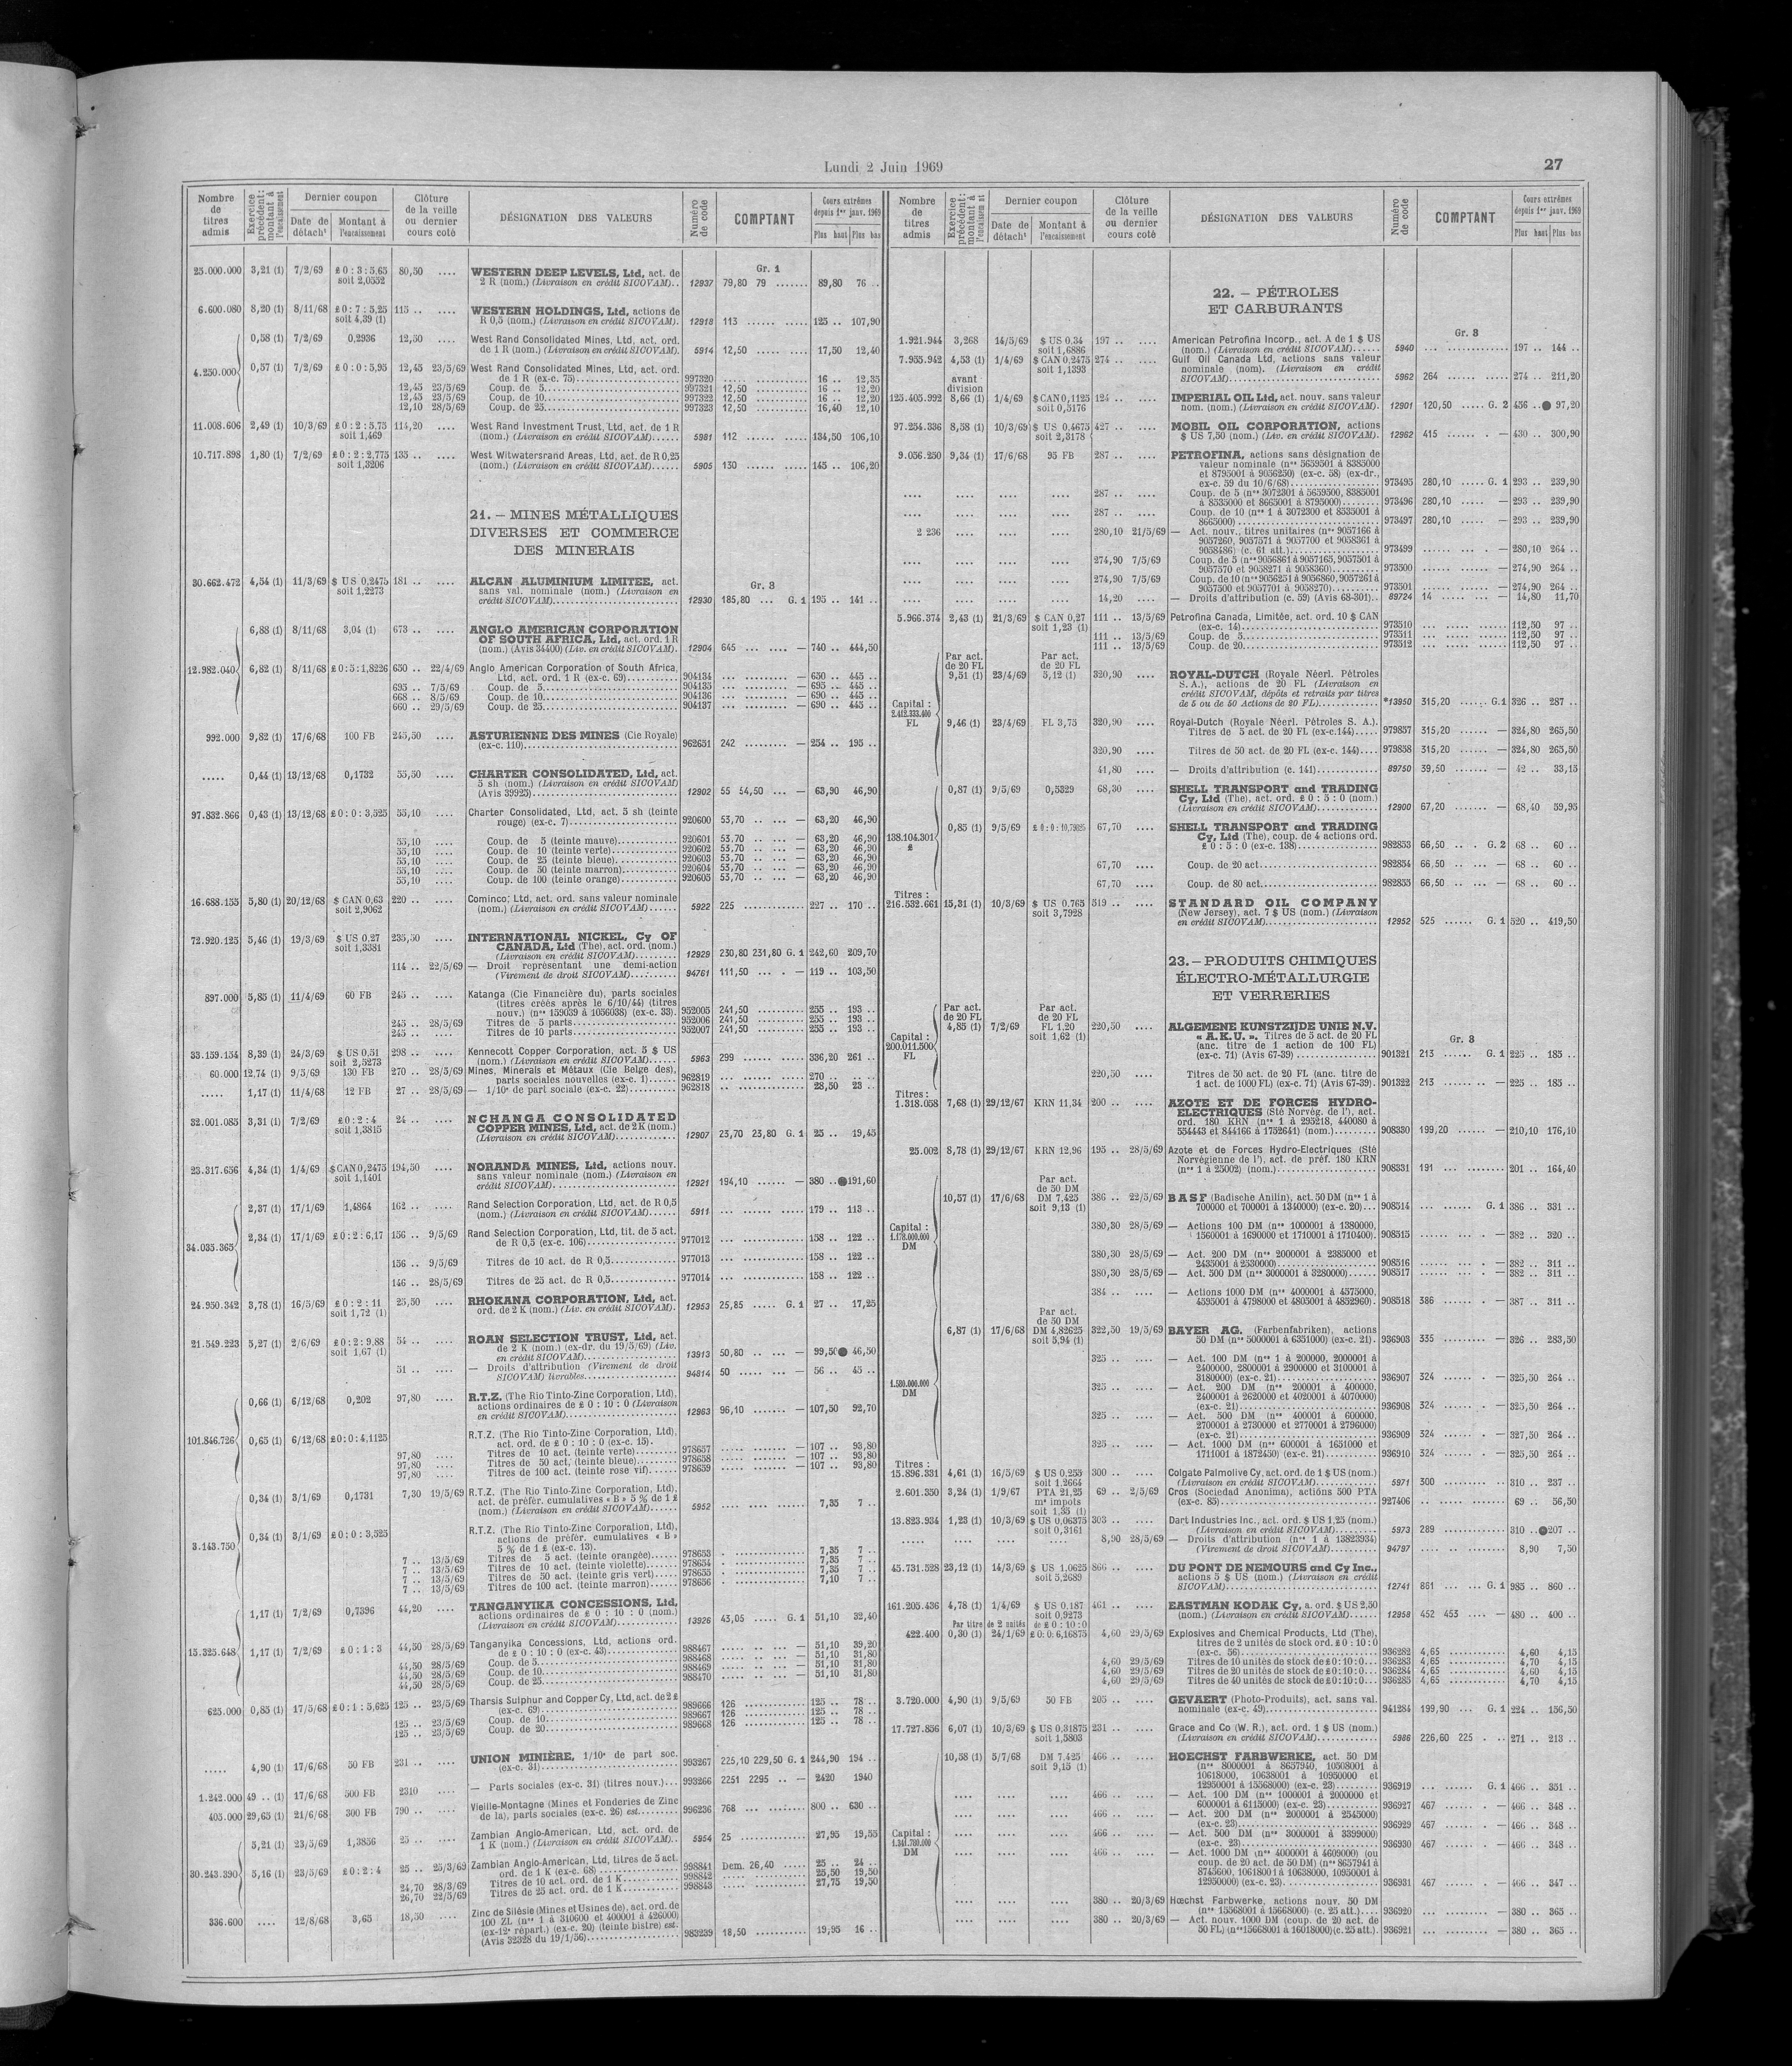 Lundi 2 Juin 1969
27
Nombre de titres admis | Exercice précédent: montant à l'encaissement | Dernier coupon | Date de détach^t | Montant à l'encaissement | Clôture de la veille ou dernier cours coté | DÉSIGNATION DES VALEURS | Numéro de code | COMPTANT | Cours extrêmes depuis 1er janv. 1969 | Plus haut | Plus bas
Gr. 1
25.000.000 3,21 (1) 7/2/69 £ 0 : 3 : 5,65 80,50 .... WESTERN DEEP LEVELS, Ltd, act. de
soit 2,0552 2 R (nom.) (Livraison en crédit SICOVAM).. 12937 79,80 79 ....... 89,80 76 ..
6.600.080 8,20 (1) 8/11/68 £ 0 : 7 : 5,25 115 .. .... WESTERN HOLDINGS, Ltd, actions de
soit 4,39 (1) R 0,5 (nom.) (Livraison en crédit SICOVAM). 12918 113 ...... ..... 125 .. 107,90
0,58 (1) 7/2/69 0,2936 12,50 .... West Rand Consolidated Mines, Ltd, act. ord.
de 1 R (nom.) (Livraison en crédit SICOVAM). 5914 12,50 ...... ..... 17,50 12,40
4.250.000 0,57 (1) 7/2/69 £ 0 : 0 : 5,95 12,45 23/5/69 West Rand Consolidated Mines, Ltd, act. ord.
de 1 R (ex-c. 75).......... 997320 ..... 16 .. 12,35
12,45 23/5/69 Coup. de 5.......... 997321 12,50 ..... 16 .. 12,20
12,45 23/5/69 Coup. de 10.......... 997322 12,50 ..... 16 .. 12,20
12,10 28/5/69 Coup. de 25.......... 997323 12,50 ..... 16,40 12,10
11.008.606 2,49 (1) 10/3/69 £ 0 : 2 : 5,75 114,20 .... West Rand Investment Trust, Ltd, act. de 1 R
soit 1,469 (nom.) (Livraison en crédit SICOVAM)...... 5981 112 ...... ..... 134,50 106,10
10.717.898 1,80 (1) 7/2/69 £ 0 : 2 : 2,775 135 .. .... West Witwatersrand Areas, Ltd, act. de R 0,25
soit 1,3206 (nom.) (Livraison en crédit SICOVAM)...... 5905 130 ...... ..... 145 .. 106,20
21. – MINES MÉTALLIQUES
DIVERSES ET COMMERCE
DES MINERAIS
Gr. 3
30.662.472 4,54 (1) 11/3/69 $ US 0,2475 181 .. .... ALCAN ALUMINIUM LIMITEE, act.
soit 1,2273 sans val. nominale (nom.) (Livraison en
crédit SICOVAM).......... 12930 185,80 ... G. 1 195 .. 141 ..
6,88 (1) 8/11/68 3,04 (1) 673 .. .... ANGLO AMERICAN CORPORATION
OF SOUTH AFRICA, Ltd, act. ord. 1 R
(nom.) (Avis 34400) (Liv. en crédit SICOVAM). 12904 645 ... .... — 740 .. 444,50
12.982.040 6,82 (1) 8/11/68 £ 0 : 5 : 1,8226 650 .. 22/4/69 Anglo American Corporation of South Africa,
Ltd, act. ord. 1 R (ex-c. 69).......... 904134 ... — 650 .. 445 ..
695 .. 7/5/69 Coup. de 5.......... 904135 ... — 695 .. 445 ..
668 .. 8/5/69 Coup. de 10.......... 904136 ... — 690 .. 445 ..
660 .. 29/5/69 Coup. de 25.......... 904137 ... — 690 .. 445 ..
992.000 9,82 (1) 17/6/68 100 FB 245,50 .... ASTURIENNE DES MINES (Cie Royale)
(ex-c. 110).......... 962651 242 ......... — 254 .. 195 ..
..... 0,44 (1) 13/12/68 0,1732 55,50 .... CHARTER CONSOLIDATED, Ltd, act.
5 sh (nom.) (Livraison en crédit SICOVAM)
(Avis 39925).......... 12902 55 54,50 ... — 63,90 46,90
97.832.866 0,43 (1) 13/12/68 £ 0 : 0 : 3,525 55,10 .... Charter Consolidated, Ltd, act. 5 sh (teinte
rouge) (ex-c. 7).......... 920600 53,70 .. ... — 63,20 46,90
55,10 .... Coup. de 5 (teinte mauve).......... 920601 53,70 .. ... — 63,20 46,90
55,10 .... Coup. de 10 (teinte verte).......... 920602 53,70 .. ... — 63,20 46,90
55,10 .... Coup. de 25 (teinte bleue).......... 920603 53,70 .. ... — 63,20 46,90
55,10 .... Coup. de 50 (teinte marron).......... 920604 53,70 .. ... — 63,20 46,90
55,10 .... Coup. de 100 (teinte orange).......... 920605 53,70 .. ... — 63,20 46,90
16.688.155 5,80 (1) 20/12/68 $ CAN 0,63 220 .. .... Cominco, Ltd, act. ord. sans valeur nominale
soit 2,9062 (nom.) (Livraison en crédit SICOVAM)...... 5922 225 ............ 227 .. 170 ..
72.920.125 5,46 (1) 19/3/69 $ US 0,27 235,50 .... INTERNATIONAL NICKEL, Cy OF
soit 1,3381 CANADA, Ltd (The), act. ord. (nom.)
(Livraison en crédit SICOVAM)......... 12929 230,80 231,80 G. 1 242,60 209,70
114 .. 22/5/69 — Droit représentant une demi-action
(Virement de droit SICOVAM)......... 94761 111,50 ... . — 119 .. 103,50
897.000 5,85 (1) 11/4/69 60 FB 245 .. .... Katanga (Cie Financière du), parts sociales
(titres créés après le 6/10/44) (titres
nouv.) (nos 159039 à 1056038) (ex-c. 33). 952005 241,50 .......... 255 .. 193 ..
245 .. 28/5/69 Titres de 5 parts.......... 952006 241,50 .......... 255 .. 193 ..
245 .. .... Titres de 10 parts.......... 952007 241,50 .......... 255 .. 193 ..
33.159.154 8,39 (1) 24/3/69 $ US 0,51 298 .. .... Kennecott Copper Corporation, act. 5 $ US
soit 2,5273 (nom.) (Livraison en crédit SICOVAM)...... 5963 299 ...... ..... 336,20 261 ..
60.000 12,74 (1) 9/5/69 130 FB 270 .. 28/5/69 Mines, Minerais et Métaux (Cie Belge des),
parts sociales nouvelles (ex-c. 1)...... 962819 ... 270 .. .. ..
..... 1,17 (1) 11/4/68 12 FB 27 .. 28/5/69 — 1/10e de part sociale (ex-c. 22)......... 962818 ... 28,50 23 ..
32.001.085 3,31 (1) 7/2/69 £ 0 : 2 : 4 24 .. .... NCHANGA CONSOLIDATED
soit 1,3815 COPPER MINES, Ltd, act. de 2 K (nom.)
(Livraison en crédit SICOVAM)............ 12907 23,70 23,80 G. 1 25 .. 19,45
23.317.656 4,34 (1) 1/4/69 $ CAN 0,2475 194,50 .... NORANDA MINES, Ltd, actions nouv.
soit 1,1401 sans valeur nominale (nom.) (Livraison en
crédit SICOVAM).......... 12921 194,10 ...... — 380 .. ● 191,60
2,37 (1) 17/1/69 1,4864 162 .. .... Rand Selection Corporation, Ltd, act. de R 0,5
(nom.) (Livraison en crédit SICOVAM)...... 5911 ... 179 .. 113 ..
34.035.365 2,34 (1) 17/1/69 £ 0 : 2 : 6,17 156 .. 9/5/69 Rand Selection Corporation, Ltd, tit. de 5 act.
de R 0,5 (ex-c. 106).......... 977012 ... 158 .. 122 ..
156 .. 9/5/69 Titres de 10 act. de R 0,5.......... 977013 ... 158 .. 122 ..
146 .. 28/5/69 Titres de 25 act. de R 0,5.......... 977014 ... 158 .. 122 ..
24.950.342 3,78 (1) 16/5/69 £ 0 : 2 : 11 25,50 .... RHOKANA CORPORATION, Ltd, act.
soit 1,72 (1) ord. de 2 K (nom.) (Liv. en crédit SICOVAM). 12953 25,85 ..... G. 1 27 .. 17,25
21.549.223 5,27 (1) 2/6/69 £ 0 : 2 : 9,88 54 .. .... ROAN SELECTION TRUST, Ltd, act.
soit 1,67 (1) de 2 K (nom.) (ex-dr. du 19/5/69) (Liv.
en crédit SICOVAM).......... 13913 50,80 .. ... — 99,50 ● 46,50
51 .. .... — Droits d'attribution (Virement de droit
SICOVAM) livrables.......... 94814 50 ..... ... — 56 .. 45 ..
0,66 (1) 6/12/68 0,202 97,80 .... R.T.Z. (The Rio Tinto-Zinc Corporation, Ltd),
actions ordinaires de £ 0 : 10 : 0 (Livraison
en crédit SICOVAM).......... 12963 96,10 ....... — 107,50 92,70
101.846.726 0,65 (1) 6/12/68 £ 0 : 0 : 4,1125 R.T.Z. (The Rio Tinto-Zinc Corporation, Ltd),
act. ord. de £ 0 : 10 : 0 (ex-c. 15).
97,80 .... Titres de 10 act. (teinte verte)......... 978657 ... — 107 .. 93,80
97,80 .... Titres de 50 act. (teinte bleue)......... 978658 ... — 107 .. 93,80
97,80 .... Titres de 100 act. (teinte rose vif)...... 978659 ... — 107 .. 93,80
0,34 (1) 3/1/69 0,1731 7,30 19/5/69 R.T.Z. (The Rio Tinto-Zinc Corporation, Ltd),
act. de préfér. cumulatives « B » 5 % de 1 £
(nom.) (Livraison en crédit SICOVAM)...... 5952 ... 7,35 7 ..
3.143.750 0,34 (1) 3/1/69 £ 0 : 0 : 3,525 R.T.Z. (The Rio Tinto-Zinc Corporation, Ltd),
actions de préfér. cumulatives « B »
5 % de 1 £ (ex-c. 13).
7 .. 13/5/69 Titres de 5 act. (teinte orangée)...... 978653 ... 7,35 7 ..
7 .. 13/5/69 Titres de 10 act. (teinte violette)...... 978654 ... 7,35 7 ..
7 .. 13/5/69 Titres de 50 act. (teinte gris vert)..... 978655 ... 7,35 7 ..
7 .. 13/5/69 Titres de 100 act. (teinte marron)...... 978656 ... 7,10 7 ..
1,17 (1) 7/2/69 0,7396 44,20 .... TANGANYIKA CONCESSIONS, Ltd,
actions ordinaires de £ 0 : 10 : 0 (nom.)
(Livraison en crédit SICOVAM)............ 13926 43,05 ..... G. 1 51,10 32,40
15.325.648 1,17 (1) 7/2/69 £ 0 : 1 : 3 44,50 28/5/69 Tanganyika Concessions, Ltd, actions ord.
de £ 0 : 10 : 0 (ex-c. 43).......... 988467 ... — 51,10 39,20
44,50 28/5/69 Coup. de 5.......... 988468 ... — 51,10 31,80
44,50 28/5/69 Coup. de 10.......... 988469 ... — 51,10 31,80
44,50 28/5/69 Coup. de 25.......... 988470 ... — 51,10 31,80
625.000 0,85 (1) 17/5/68 £ 0 : 1 : 5,625 125 .. 23/5/69 Tharsis Sulphur and Copper Cy, Ltd, act. de 2 £
(ex-c. 69).......... 989666 126 ............ 125 .. 78 ..
125 .. 23/5/69 Coup. de 10.......... 989667 126 ............ 125 .. 78 ..
125 .. 23/5/69 Coup. de 20.......... 989668 126 ............ 125 .. 78 ..
..... 4,90 (1) 17/6/68 50 FB 231 .. .... UNION MINIÈRE, 1/10e de part soc.
(ex-c. 31).......... 993267 225,10 229,50 G. 1 244,90 194 ..
1.242.000 49 .. (1) 17/6/68 500 FB 2310 .... — Parts sociales (ex-c. 31) (titres nouv.)... 993266 2251 2295 .. — 2420 1940
405.000 29,65 (1) 21/6/68 300 FB 790 .. .... Vieille-Montagne (Mines et Fonderies de Zinc
de la), parts sociales (ex-c. 26) est......... 996236 768 ... ....... 800 .. 630 ..
5,21 (1) 23/5/69 1,3856 25 .. .... Zambian Anglo-American, Ltd, act. ord. de
1 K (nom.) (Livraison en crédit SICOVAM).. 5954 25 ............ 27,95 19,55
30.243.390 5,16 (1) 23/5/69 £ 0 : 2 : 4 25 .. 25/3/69 Zambian Anglo-American, Ltd, titres de 5 act.
ord. de 1 K (ex-c. 68) .......... 998841 Dem. 26,40 ..... 25 .. 24 ..
24,70 28/3/69 Titres de 10 act. ord. de 1 K.......... 998842 ... 25,50 19,50
26,70 22/5/69 Titres de 25 act. ord. de 1 K.......... 998843 ... 27,75 19,50
336.600 .... 12/8/68 3,65 18,50 .... Zinc de Silésie (Mines et Usines de), act. ord. de
100 ZL (nos 1 à 310600 et 400001 à 426000)
(ex-12e répart.) (ex-c. 20) (teinte bistre) est.
(Avis 32328 du 19/1/56).......... 983239 18,50 .......... 19,95 16 ..
Nombre de titres admis | Exercice précédent: montant à l'encaissement | Dernier coupon | Date de détach^t | Montant à l'encaissement | Clôture de la veille ou dernier cours coté | DÉSIGNATION DES VALEURS | Numéro de code | COMPTANT | Cours extrêmes depuis 1er janv. 1969 | Plus haut | Plus bas
22. – PÉTROLES
ET CARBURANTS
Gr. 3
1.921.944 3,268 14/5/69 $ US 0,34 197 .. .... American Petrofina Incorp., act. A de 1 $ US
soit 1,6886 (nom.) (Livraison en crédit SICOVAM)...... 5940 ... 197 .. 144 ..
7.955.942 4,53 (1) 1/4/69 $ CAN 0,2475 274 .. .... Gulf Oil Canada Ltd, actions sans valeur
soit 1,1393 nominale (nom). (Livraison en crédit
SICOVAM).......... 5962 264 ...... ..... 274 .. 211,20
avant division
125.405.992 8,66 (1) 1/4/69 $ CAN 0,1125 124 .. .... IMPERIAL OIL Ltd, act. nouv. sans valeur
soit 0,5176 nom. (nom.) (Livraison en crédit SICOVAM). 12901 120,50 ..... G. 2 456 .. ● 97,20
97.254.336 8,58 (1) 10/3/69 $ US 0,4675 427 .. .... MOBIL OIL CORPORATION, actions
soit 2,3178 $ US 7,50 (nom.) (Liv. en crédit SICOVAM). 12962 415 ...... . — 430 .. 300,90
9.056.250 9,34 (1) 17/6/68 95 FB 287 .. .... PETROFINA, actions sans désignation de
valeur nominale (nos 5659501 à 8385000
et 8795001 à 9056250) (ex-c. 58) (ex-dr.,
ex-c. 59 du 10/6/68).......... 973495 280,10 ..... G. 1 293 .. 239,90
.... .... .... .... 287 .. .... Coup. de 5 (nos 3072301 à 5659500, 8385001
à 8535000 et 8665001 à 8795000)......... 973496 280,10 ..... — 293 .. 239,90
.... .... .... .... 287 .. .... Coup. de 10 (nos 1 à 3072300 et 8535001 à
8665000).......... 973497 280,10 ..... — 293 .. 239,90
2 236 .... .... .... 280,10 21/5/69 — Act. nouv., titres unitaires (nos 9057166 à
9057260, 9057571 à 9057700 et 9058361 à
9058486) (c. 61 att.).......... 973499 ... — 280,10 264 ..
.... .... .... .... 274,90 7/5/69 Coup. de 5 (nos 9056861 à 9057165, 9057501 à
9057570 et 9058271 à 9058360).......... 973500 ... — 274,90 264 ..
.... .... .... .... 274,90 7/5/69 Coup. de 10 (nos 9056251 à 9056860, 9057261 à
9057500 et 9057701 à 9058270).......... 973501 ... — 274,90 264 ..
.... .... .... .... 14,20 .... — Droits d'attribution (c. 59) (Avis 68-301).. 89724 14 ..... ... — 14,80 11,70
5.966.374 2,43 (1) 21/3/69 $ CAN 0,27 111 .. 13/5/69 Petrofina Canada, Limitée, act. ord. 10 $ CAN
soit 1,23 (1) (ex-c. 14).......... 973510 ... 112,50 97 ..
111 .. 13/5/69 Coup. de 5.......... 973511 ... 112,50 97 ..
111 .. 13/5/69 Coup. de 20.......... 973512 ... 112,50 97 ..
Par act. de 20 FL Par act. de 20 FL
9,51 (1) 23/4/69 5,12 (1) 320,90 .... ROYAL-DUTCH (Royale Néerl. Pétroles
S. A.), actions de 20 FL (Livraison en
crédit SICOVAM, dépôts et retraits par titres
de 5 ou de 50 Actions de 20 FL)............ *13950 315,20 ...... G. 1 326 .. 287 ..
Capital : 2.412.333.400 FL
9,46 (1) 23/4/69 FL 3,75 320,90 .... Royal-Dutch (Royale Néerl. Pétroles S. A.).
Titres de 5 act. de 20 FL (ex-c. 144)..... 979857 315,20 ... ... — 324,80 265,50
320,90 .... Titres de 50 act. de 20 FL (ex-c. 144).... 979858 315,20 ... ... — 324,80 265,50
41,80 .... — Droits d'attribution (c. 141)............ 89750 39,50 ....... — 42 .. 33,15
0,87 (1) 9/5/69 0,5329 68,30 .... SHELL TRANSPORT and TRADING
Cy, Ltd (The), act. ord. £ 0 : 5 : 0 (nom.)
(Livraison en crédit SICOVAM)............ 12900 67,20 ....... — 68,40 59,95
138.104.301 £ 0,85 (1) 9/5/69 £ 0 : 0 : 10,7925 67,70 .... SHELL TRANSPORT and TRADING
Cy, Ltd (The), coup. de 4 actions ord.
£ 0 : 5 : 0 (ex-c. 138).......... 982853 66,50 .. . G. 2 68 .. 60 ..
67,70 .... Coup. de 20 act.......... 982854 66,50 .. ... — 68 .. 60 ..
67,70 .... Coup. de 80 act.......... 982855 66,50 .. ... — 68 .. 60 ..
Titres :
216.532.661 15,31 (1) 10/3/69 $ US 0.765 519 .. .... STANDARD OIL COMPANY
soit 3,7928 (New Jersey), act. 7 $ US (nom.) (Livraison
en crédit SICOVAM).......... 12952 525 ...... G. 1 520 .. 419,50
23. – PRODUITS CHIMIQUES
ÉLECTRO-MÉTALLURGIE
ET VERRERIES
Gr. 3
Par act. de 20 FL Par act. de 20 FL
4,85 (1) 7/2/69 FL 1,20 220,50 .... ALGEMENE KUNSTZIJDE UNIE N.V.
soit 1,62 (1) « A.K.U. ». Titres de 5 act. de 20 FL
Capital : 200.011.500 FL (anc. titre de 1 action de 100 FL)
(ex-c. 71) (Avis 67-39) .......... 901321 213 ...... G. 1 225 .. 185 ..
220,50 .... Titres de 50 act. de 20 FL (anc. titre de
1 act. de 1000 FL) (ex-c. 71) (Avis 67-39). 901322 213 ...... .. — 225 .. 185 ..
Titres :
1.318.058 7,68 (1) 29/12/67 KRN 11,34 200 .. .... AZOTE ET DE FORCES HYDRO-
ELECTRIQUES (Sté Norvég. de l'), act.
ord. 180 KRN (nos 1 à 295218, 440080 à
554443 et 844166 à 1752641) (nom.)....... 908330 199,20 ..... — 210,10 176,10
25.002 8,78 (1) 29/12/67 KRN 12,96 195 .. 28/5/69 Azote et de Forces Hydro-Electriques (Sté
Norvégienne de l'), act. de préf. 180 KRN
(nos 1 à 25002) (nom.).......... 908331 191 ... ......... 201 .. 164,40
Par act. de 50 DM
10,57 (1) 17/6/68 DM 7,425 386 .. 22/5/69 BASF (Badische Anilin), act. 50 DM (nos 1 à
soit 9,13 (1) 700000 et 700001 à 1340000) (ex-c. 20)... 908514 ... G. 1 386 .. 331 ..
Capital : 1.178.000.000 DM
380,30 28/5/69 — Actions 100 DM (nos 1000001 à 1380000,
1560001 à 1690000 et 1710001 à 1710400). 908515 ... — 382 .. 320 ..
380,30 28/5/69 — Act. 200 DM (nos 2000001 à 2385000 et
2435001 à 2530000).......... 908516 ... — 382 .. 311 ..
380,30 28/5/69 — Act. 500 DM (nos 3000001 à 3280000)...... 908517 ... — 382 .. 311 ..
384 .. .... — Actions 1000 DM (nos 4000001 à 4575000,
4595001 à 4798000 et 4805001 à 4852960). 908518 386 ...... . — 387 .. 311 ..
Par act. de 50 DM
6,87 (1) 17/6/68 DM 4,82625 322,50 19/5/69 BAYER AG. (Farbenfabriken), actions
soit 5,94 (1) 50 DM (nos 5000001 à 6351000) (ex-c. 21). 936903 335 ...... .. — 326 .. 283,50
325 .. .... — Act. 100 DM (nos 1 à 200000, 2000001 à
2400000, 2800001 à 2900000 et 3100001 à
3180000) (ex-c. 21).......... 936907 324 ...... . — 325,50 264 ..
1.580.000.000 DM
325 .. .... — Act. 200 DM (nos 200001 à 400000,
2400001 à 2620000 et 4020001 à 4070000)
(ex-c. 21).......... 936908 324 ...... . — 325,50 264 ..
325 .. .... — Act. 500 DM (nos 400001 à 600000,
2700001 à 2730000 et 2770001 à 2796000)
(ex-c. 21).......... 936909 324 ...... . — 327,50 264 ..
325 .. .... — Act. 1000 DM (nos 600001 à 1651000 et
1711001 à 1872450) (ex-c. 21).......... 936910 324 ...... . — 325,50 264 ..
Titres :
15.896.331 4,61 (1) 16/5/69 $ US 0,255 300 .. .... Colgate Palmolive Cy, act. ord. de 1 $ US (nom.)
soit 1,2664 (Livraison en crédit SICOVAM)............ 5971 300 ............ 310 .. 237 ..
2.601.350 3,24 (1) 1/9/67 PTA 21,25 69 .. 2/5/69 Cros (Sociedad Anonima), actions 500 PTA
ms impots (ex-c. 85).......... 927406 ... 69 .. 56,50
soit 1,35 (1)
13.823.934 1,23 (1) 10/3/69 $ US 0,06375 303 .. .... Dart Industries Inc., act. ord. $ US 1,25 (nom.)
soit 0,3161 (Livraison en crédit SICOVAM)......... 5973 289 ............ 310 .. ● 207 ..
..... .... .... .... 8,90 28/5/69 — Droits d'attribution (nos 1 à 13823934)
(Virement de droit SICOVAM)............ 94797 ... 8,90 7,50
45.731.528 23,12 (1) 14/3/69 $ US 1,0625 866 .. .... DU PONT DE NEMOURS and Cy Inc.,
soit 5,2689 actions 5 $ US (nom.) (Livraison en crédit
SICOVAM).......... 12741 861 ... ... G. 1 985 .. 860 ..
161.205.436 4,78 (1) 1/4/69 $ US 0,187 461 .. .... EASTMAN KODAK Cy, a. ord. $ US 2,50
soit 0,9273 (nom.) (Livraison en crédit SICOVAM)...... 12958 452 453 .... — 480 .. 400 ..
Par titre de 2 unités de £ 0 : 10 : 0
422.400 0,30 (1) 24/1/69 £ 0 : 0 : 6,16875 4,60 29/5/69 Explosives and Chemical Products, Ltd (The),
titres de 2 unités de stock ord. £ 0 : 10 : 0
(ex-c. 56).......... 936282 4,65 ............ 4,60 4,15
4,60 29/5/69 Titres de 10 unités de stock de £ 0 : 10 : 0... 936283 4,65 ............ 4,70 4,15
4,60 29/5/69 Titres de 20 unités de stock de £ 0 : 10 : 0... 936284 4,65 ............ 4,60 4,15
4,60 29/5/69 Titres de 40 unités de stock de £ 0 : 10 : 0... 936285 4,65 ............ 4,70 4,15
3.720.000 4,90 (1) 9/5/69 50 FB 205 .. .... GEVAERT (Photo-Produits), act. sans val.
nominale (ex-c. 49).......... 941284 199,90 ... G. 1 224 .. 156,50
17.727.856 6,07 (1) 10/3/69 $ US 0,31875 231 .. .... Grace and Co (W. R.), act. ord. 1 $ US (nom.)
soit 1,5803 (Livraison en crédit SICOVAM)............ 5986 226,60 225 . .. 271 .. 213 ..
10,58 (1) 5/7/68 DM 7,425 466 .. .... HOECHST FARBWERKE, act. 50 DM
soit 9,15 (1) (nos 8000001 à 8657940, 10508001 à
10618000, 10638001 à 10950000 et
12950001 à 15568000) (ex-c. 23)......... 936919 ... G. 1 466 .. 351 ..
.... .... .... 466 .. .... — Act. 100 DM (nos 1000001 à 2000000 et
6000001 à 6115000) (ex-c. 23).......... 936927 467 ...... .. — 466 .. 348 ..
.... .... .... 466 .. .... — Act. 200 DM (nos 2000001 à 2545000)
(ex-c. 23).......... 936929 467 ...... .. — 466 .. 348 ..
Capital : 1.341.780.000 DM
.... .... .... 466 .. .... — Act. 500 DM (nos 3000001 à 3399000)
(ex-c. 23).......... 936930 467 ...... .. — 466 .. 348 ..
.... .... .... 466 .. .... — Act. 1000 DM (nos 4000001 à 4609000) (ou
coup. de 20 act. de 50 DM) (nos 8657941 à
8745600, 10618001 à 10638000, 10950001 à
12950000) (ex-c. 23).......... 936931 467 ...... .. — 466 .. 347 ..
.... .... .... 380 .. 20/3/69 Hœchst Farbwerke, actions nouv. 50 DM
(nos 15568001 à 15668000) (c. 25 att.).... 936920 ... — 380 .. 365 ..
.... .... .... 380 .. 20/3/69 — Act. nouv. 1000 DM (coup. de 20 act. de
50 FL) (nos 15668001 à 16018000) (c. 25 att.). 936921 ... — 380 .. 365 ..